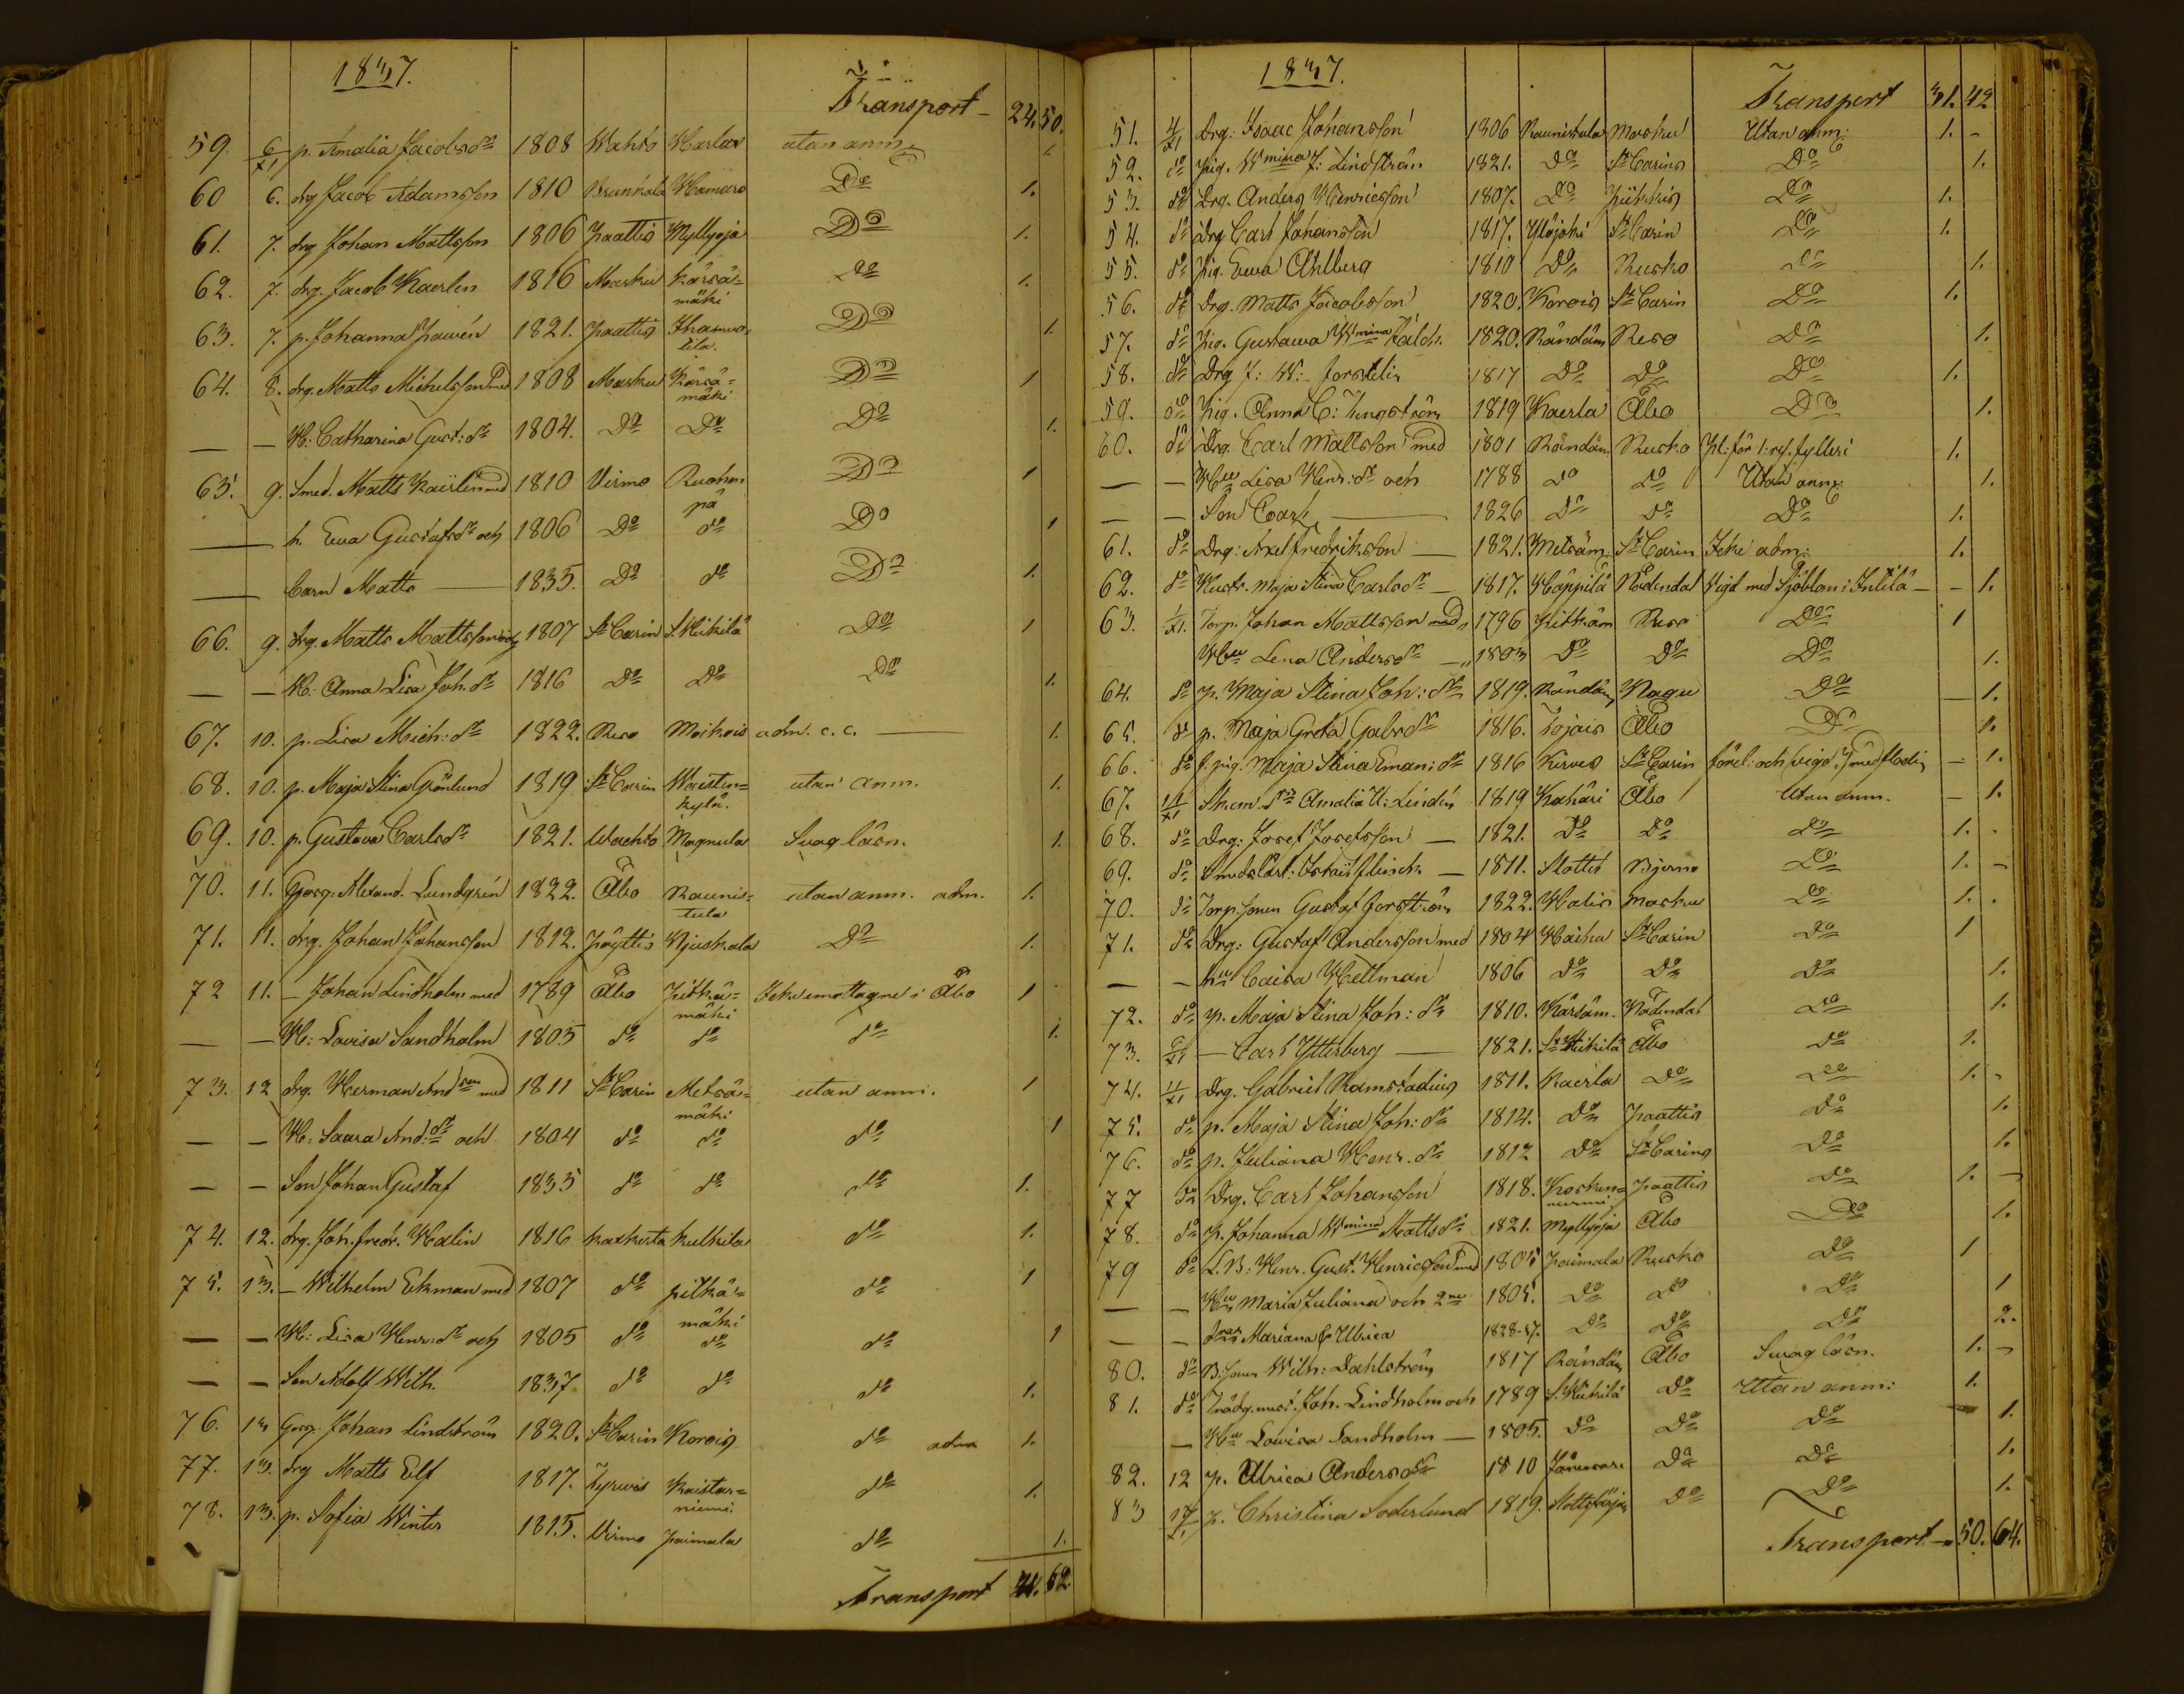 1837.
Transport - 24. 50.
59. 6/XI p. Amalia Jacobsdr 1808 Wahto Harlax utan anm. 1.
60 6. drg Jacob Adamsson 1810 Brunkala Hamaro Do 1.
61. 7. drg Johan Mattsson 1806 Paattis Myllyoja Do 1.
62. 7. drg. Jacob Kaerlen 1816 Masku Kärsä= Do 1.
mäki
63. 7. p. Johanna Pawén 1821. Paattis Ihamus= Do 1.
tila.
64. 8. drg. Matts Michelsson med 1808 Masku Kärsä= Do 1
mäki
— — H: Catharina Gust: dr 1804. Do Do Do 1.
65. 9. Smed. Matts Kaerlén med 1810 Virmo Ruohon Do 1
pä
— h. Ewa Gustafsdr och 1806 Do do Do 1
— barn Matts — 1835. Do do Do 1.
66. 9. drg. Matts Mattsson och 1807 St Carin S. Heikilä Do 1
— — H: Anna Lisa Joh. dr 1816 Do Do Do 1.
67. 10. p. Lisa Mich: dr 1822. Reso Moikois adm. c. c. — 1.
68. 10. p. Maja Stina Grönlund 1819 St Carin Waisten= utan anm. 1.
kylä.
69. 10. p. Gustava Carlsdr 1821. Wachto Magnula Svag läsn. 1.
70. 11. Gosg: Alexand. Lundgrén 1822. Åbo Raunis= utan anm. adm. 1.
tula
71. 11. drg. Johan Johansson 1812. Pöyttis Njuskala Do 1.
72 11. — Johan Lindholm med 1789 Åbo Pitkä= Icke emottagne i Åbo 1
mäki
— — H: Lovisa Sandholm 1805 do do do 1.
73. 12 drg. Herman Andsson med 1811 St Carin Metsä= utan anm. 1
mäki
— — H: Saara And: dr och 1804 do do do 1
— — Son Johan Gustaf 1835 do do do 1.
74. 12. drg. Joh. Fredr. Halin 1816 Karkerta Kulkila do 1.
75. 13. — Wilhelm Ekman med 1807 do pitkä= do 1
mäki
— — H: Lisa Henr: dr och 1805 do do do 1
— — Son Adolf Wilh. 1837 do do do 1.
76. 13 Gosg. Johan Lindström 1820. St Carin Korois do adm 1.
77. 13. drg Matts Elf 1817. Tyrvis Kaistar= do 1.
niemi.
78. 13. p. Sofia Winter 1815. Virmo Paimala do 1.
Transport 41. 62.
1837.
Transport 31. 42
51. 4/XI Drg: Isaac Johansson 1806 Raunistula Masku Utan anm: 1. -
52. do Pig. Wmina J: Lindström 1821. Do St Carins Do 1.
53. do Drg. Anders Henricsson 1807. Do Piikkis Do 1.
54. do Drg Carl Johansson 1817. Ylöjoki St Carin Do 1.
55. do Pig. Ewa Ahlberg 1810 Do Rusko Do 1.
56. do Drg. Matts Jacobsson 1820. Korois St Carin Do 1.
57. do Pig. Gustawa Wmina Fäldt. 1820. Rändäm Reso Do 1.
58. do Drg J: W: Forstelin 1817 Do Do Do 1.
59. do Pig. Anna C: Jungström 1819 Kaerla Åbo Do 1.
60. do Drg. Carl Mattsson med 1801 Rändäm Rusko Pl: för 1: res. fylleri 1.
— — Hu Lisa Henr: dr och 1788 do do Utan anm: 1.
— — Son Carl — 1826 do do Do 1.
61. do Drg: Axel Fredriksson — 1821. Metsäm. St Carin Icke adm: 1.
62. do Hustr. Maja Stina Carlsdr — 1817. Häppilä Nådendal Vigd med Sjöblom i Intilä — - 1.
63. 1/XI. Torp. Johan Mattsson med 1796 Pitkäm Reso Do 1
Hu Lena Andersdr — 1803 Do Do Do 1.
64. do p. Maja Stina Joh: dr 1819. Rändäm Nagu Do — 1.
65. do p. Maja Greta Gabrdr 1816. Tojais Åbo Do 1.
66. do f. pig. Maja Stina Eman: dr 1816 Kurves St Carin förel: och vigd med Flodin — 1.
67. 11/XI Skom. dr Amalia U: Lindén 1819 Kahäri Åbo Utan anm. — 1.
68. do Drg: Josef Josefsson — 1821. Do Do Do 1.
69. do Smedslärl: Israël Flinck — 1811. Slottet Bjerno Do 1. -
70. do Torp. sonen Gustaf Forsström 1822. Halis Masku Do 1.
71. do Drg: Gustaf Andersson med 1804 Haiha St Carin Do 1
— — hu Caisa Hellman 1806 Do Do Do 1.
72. do p. Maja Stina Joh: dr 1810. Kärsäm. Nådendal Do 1.
73. 6/XI — Carl Ytterberg — 1821. St Heikilä Åbo Do 1.
74. 4/XI Drg. Gabriel Ramstadius 1811. Kaerla Do Do 1. -
75. do p. Maja Stina Joh: dr 1814. Do Paattis Do 1.
76. do p. Juliana Henr. dr 1812 Do St Carins Do 1.
77 do Drg. Carl Johansson 1818. Kosken= Paattis Do 1. -
niemi
78. do p. Johanna Wmina Mattsdr 1821. Myllyoja Åbo Do 1.
79 do L. B: Henr. Gust. Henricsson med 1805 Paimala Rusko Do 1
— — Hu Maria Juliana och 2ne 1805. Do do Do 1
— — drar Mariana & Ulrica 1828-37. Do Do Do 2.
80. do B: sonen Wilh: Dahlström 1817 Rändäm Åbo Swag läsn. 1. -
81. do Trädg. mäst. Joh. Lindholm och 1789 S. Heikilä Do Utan anm: 1.
— Hu Lovisa Sandholm — 1805. Do Do Do 1.
82. 12 p. Ulrica Andersdr 1810 Do Do 1.
83 17/XI p. Christina Söderlund 1819. Do Do 1.
Transport — 50. 64.